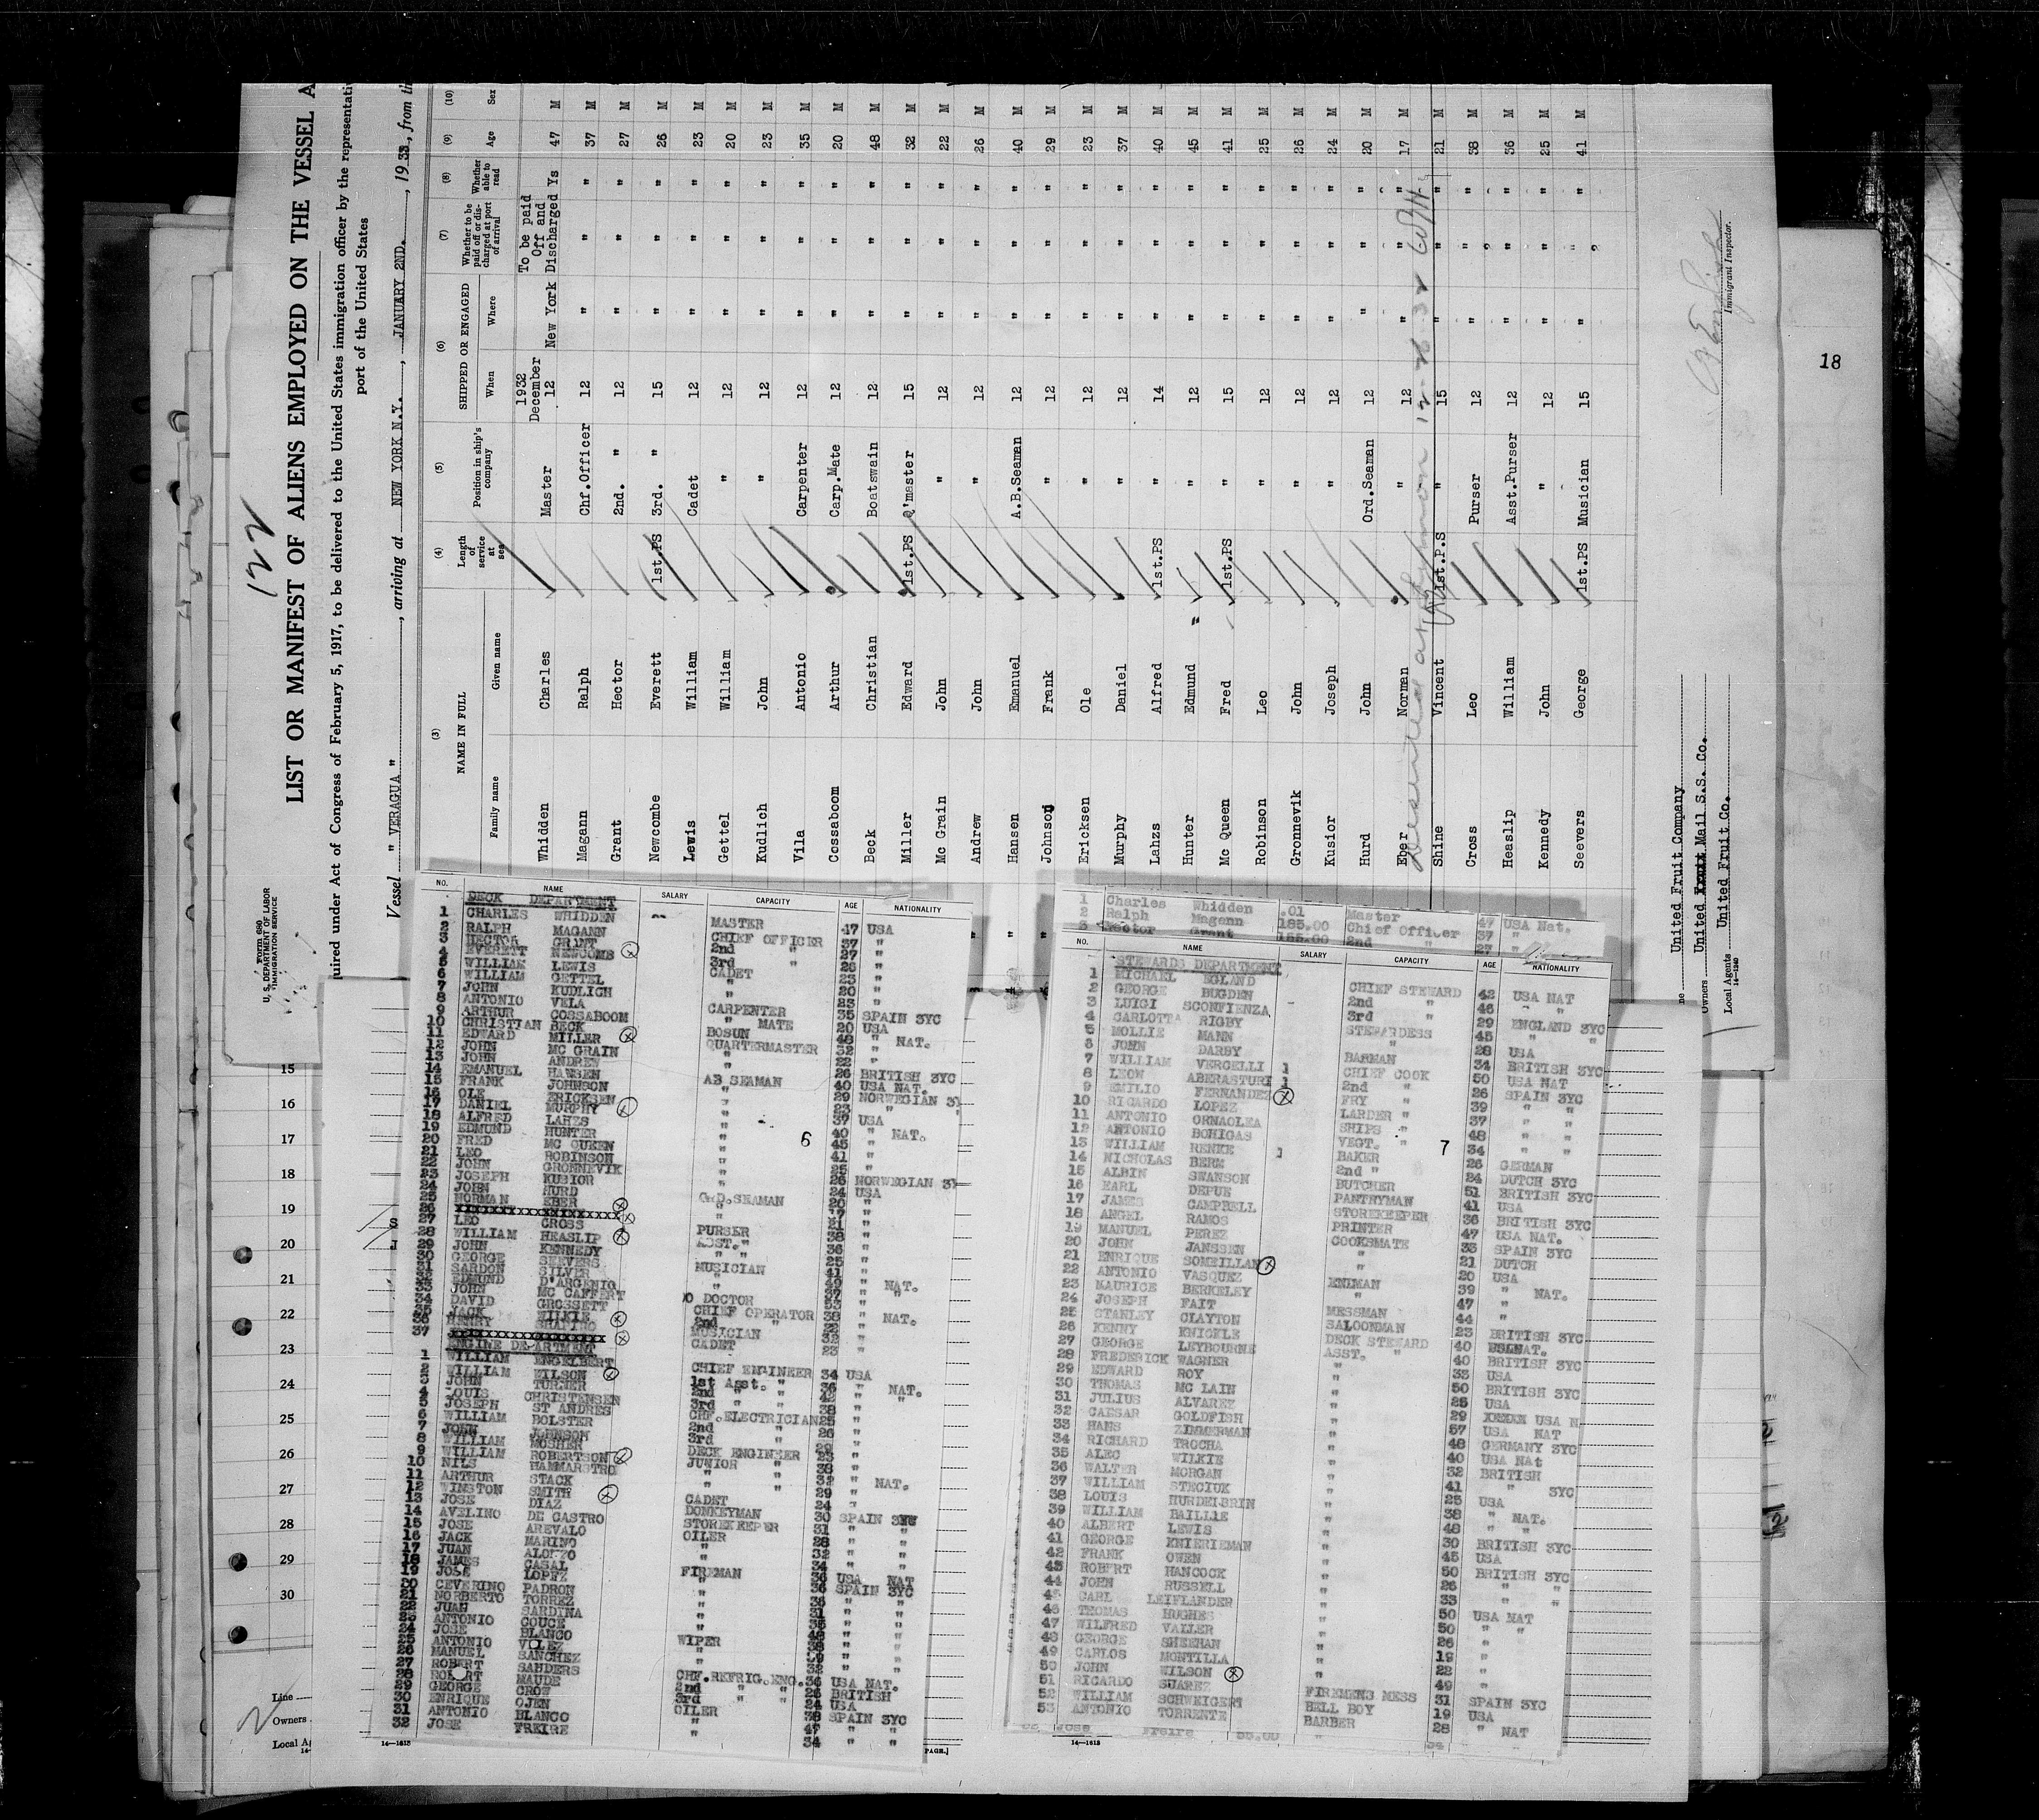 122
Form 689
U. S. DEPARTMENT OF LABOR
IMMIGRATION SERVICE
LIST OR MANIFEST OF ALIENS EMPLOYED ON THE VESSEL A
quired under Act of Congress of February 5, 1917, to be delivered to the United States immigration officer by the representati
port of the United States
Vessel " VERAGUA " , arriving at NEW YORK N.Y. , JANUARY 2ND. , 1933, from th
(3) (4) (5) (6) (7) (8) (9) (10)
NAME IN FULL Length of service at sea Position in ship's company SHIPPED OR ENGAGED Whether to be paid off or discharged at port of arrival Whether able to read Age Sex
Family name Given name When Where
1932 December To be paid Off and
Whidden Charles Master 12 New York Discharged Ys 47 M
Magann Ralph Chf.Officer 12 " " " 37 M
Grant Hector 2nd. " 12 " " " 27 M
Newcombe Everett 1st.PS 3rd. " 15 " " " 26 M
Lewis William Cadet 12 " " " 23 M
Gettel William " 12 " " " 20 M
Kudlich John " 12 " " " 23 M
Vila Antonio Carpenter 12 " " " 35 M
Cossaboom Arthur Carp.Mate 12 " " " 20 M
Beck Christian Boatswain 12 " " " 48 M
Miller Edward 1st.PS Q'master 15 " " " 32 M
Mc Grain John " 12 " " " 22 M
Andrew John " 12 " " " 26 M
Hansen Emanuel A.B.Seaman 12 " " " 40 M
Johnson Frank " 12 " " " 29 M
Ericksen Ole " 12 " " " 23 M
Murphy Daniel " 12 " " " 37 M
Lahzs Alfred 1st.PS " 14 " " " 40 M
Hunter Edmund " 12 " " " 45 M
Mc Queen Fred 1st.PS " 15 " " " 41 M
Robinson Leo " 12 " " " 25 M
Gronnevik John " 12 " " " 26 M
Kusior Joseph " 12 " " " 24 M
Hurd John Ord.Seaman 12 " " " 20 M
Eber Norman " 12 " " " 17 M
Shine Vincent 1st.P.S " 15 " " " 21 M
Cross Leo Purser 12 " " " 38 M
Heaslip William Asst.Purser 12 " " " 36 M
Kennedy John " 12 " " " 25 M
Seevers George 1st.PS Musician 15 " " " 41 M
ne United Fruit Company
Owners United Fruit Mail S.S. Co.
Local Agents United Fruit Co.
14—1240
Immigrant Inspector.
18
NO. NAME SALARY CAPACITY AGE NATIONALITY
DECK DEPARTMENT
1 CHARLES WHIDDEN MASTER 47 USA
2 RALPH MAGANN CHIEF OFFICER 37 "
3 HECTOR GRANT 2nd " 27 "
4 EVERETT NEWCOMB 3rd " 26 "
5 WILLIAM LEWIS CADET 23 "
6 WILLIAM GETTEL " 20 "
7 JOHN KUDLICH " 23 "
8 ANTONIO VELA CARPENTER 35 SPAIN 3YC
9 ARTHUR COSSABOOM " MATE 20 USA
10 CHRISTIAN BECK BOSUN 48 " NAT.
11 EDWARD MILLER QUARTERMASTER 32 "
12 JOHN MC GRAIN " 22 "
13 JOHN ANDREW " 26 BRITISH 3YC
14 EMANUEL HANSEN AB SEAMAN 40 USA NAT.
15 FRANK JOHNSON " 29 NORWEGIAN 3Y
16 OLE ERICKSEN " 23 " "
17 DANIEL MURPHY " 37 USA
18 ALFRED LAHZS " 40 " NAT.
19 EDMUND HUNTER " 45 "
20 FRED MC QUEEN " 41 "
21 LEO ROBINSON " 25 "
22 JOHN GRONNEVIK " 26 NORWEGIAN 3Y
23 JOSEPH KUSIOR " 24 USA
24 JOHN HURD O.D.SEAMAN 20 "
25 NORMAN EBER " 17 "
26 XXXXXXXXXXXXXXXXXX 21 "
27 LEO CROSS PURSER 38 "
28 WILLIAM HEASLIP ASST. " 36 "
29 JOHN KENNEDY " " 25 "
30 GEORGE SEEVERS MUSICIAN 41 "
31 SARDON SILVER " 49 " NAT.
32 EDMUND D'ARGENIO " 27 " "
33 JOHN MC CAFFERT DOCTOR 53 "
34 DAVID GROSSETT CHIEF OPERATOR 38 " NAT.
35 JACK WILKIE 2nd "
36 HENRY SHAPIRO MUSICIAN
37 XXXXXXXXXXXXXXXX CADET 23 "
ENGINE DEPARTMENT
1 WILLIAM ENGELBERT CHIEF ENGINEER 34 USA
2 WILLIAM WILSON 1st Asst. " 36 " NAT.
3 JOHN TURNER 2nd " " 42 " "
4 LOUIS CHRISTENSEN 3rd " 38 "
5 JOSEPH ST ANDRES CHF.ELECTRICIAN 25 "
6 WILLIAM BOLSTER 2nd " 26 "
7 JOHN JOHNSON 3rd "
8 WILLIAM MOSHER DECK ENGINEER 29 "
9 WILLIAM ROBERTSON JUNIOR " 23 "
10 NILS HAMMARSTRO " " 38 "
11 ARTHUR STACK " " 32 " NAT.
12 WINSTON SMITH CADET 29 "
13 JOSE DIAZ DONKEYMAN 24 "
14 AVELINO DE CASTRO STOREKEEPER 30 SPAIN 3YC
15 JOSE AREVALO OILER 31 " "
16 JACK MARINO " 28 " "
17 JUAN ALONZO " 32 " "
18 JAMES CASAL " 34 " "
19 JOSE LOPEZ FIREMAN 36 USA NAT
20 CEVERINO PADRON " 36 SPAIN 3YC
21 NORBERTO TORREZ " 36 " "
22 JUAN SARDINA " 31 " "
23 ANTONIO COUCE " 35 " "
24 JOSE BLANCO " 48 " "
25 ANTONIO VELEZ WIPER 38 " "
26 MANUEL SANCHEZ " 39 " "
27 ROBERT SANDERS " 32 " "
28 ROBERT MAUDE CHF.REFRIG.ENG. 36 USA NAT.
29 GEORGE CROW 2nd " " 26 BRITISH
30 ENRIQUE OJEN 3rd " " 24 USA
31 ANTONIO BLANCO OILER 38 SPAIN 3YC
32 JOSE FREIRE " 47 " "
" 34 " "
6
1 Charles Whidden .01 Master 47 USA Nat.
2 Ralph Magann 185.00 Chief Officer 37 "
3 Hector Grant 155.00 2nd " 27
NO. NAME SALARY CAPACITY AGE NATIONALITY
STEWARDS DEPARTMENT
1 MICHAEL EGLAND CHIEF STEWARD 42 USA NAT
2 GEORGE BUGDEN 2nd " 46 " "
3 LUIGI SCONFIENZA 3rd " 29 ENGLAND 3YC
4 CARLOTTA RIGBY STEWARDESS 45 " "
5 MOLLIE MANN " 28 USA
6 JOHN DARBY BARMAN 34 BRITISH 3YC
7 WILLIAM VERCELLI CHIEF COOK 50 USA NAT
8 LEON ABERASTURI 2nd " 26 SPAIN 3YC
9 EMILIO FERNANDEZ FRY " 39 " "
10 RICARDO LOPEZ LARDER " 37 " "
11 ANTONIO ORNAOLEA SHIPS " 48 " "
12 ANTONIO BOHIGAS VEGT. " 34 " "
13 WILLIAM RENKE BAKER 26 GERMAN
14 NICHOLAS BERK 2nd " 24 DUTCH 3YC
15 ALBIN SWANSON BUTCHER 51 BRITISH 3YC
16 EARL DEPUE PANTRYMAN 41 USA
17 JAMES CAMPBELL STOREKEEPER 36 BRITISH 3YC
18 ANGEL RAMOS PRINTER 47 USA NAT.
19 MANUEL PEREZ COOKSMATE 33 SPAIN 3YC
20 JOHN JANSSEN " 21 DUTCH
21 ENRIQUE SOMEILLAN " 20 USA
22 ANTONIO VASQUEZ KNIMAN 39 " NAT.
23 MAURICE BERKELEY " 47 "
24 JOSEPH FAIT MESSMAN 44 "
25 STANLEY CLAYTON SALOONMAN 23 BRITISH 3YC
26 KENNY KNICKLE DECK STEWARD 40 NAT.
27 GEORGE LEYBOURNE ASST. " 40 BRITISH 3YC
28 FREDERICK WAGNER " 33 USA
29 EDWARD ROY " 50 BRITISH 3YC
30 THOMAS MC LAIN " 25 USA
31 JULIUS ALVAREZ " 29 USA N
32 CAESAR GOLDFISH " 57 USA NAT
33 HANS ZIMMERMAN " 48 GERMANY 3YC
34 RICHARD TROCHA " 40 USA NAt
35 ALEC WILKIE " 32 BRITISH
36 WALTER MORGAN " 41 " 3YC
37 WILLIAM STECIUK " 25 USA
38 LOUIS HURDELBRIN " 38 " NAT.
39 WILLIAM BAILLIE " 48 " "
40 ALBERT LEWIS " 30 BRITISH 3YC
41 GEORGE KNIERIEMAN " 45 USA
42 FRANK OWEN " 50 BRITISH 3YC
43 ROBERT HANCOCK " 26 " "
44 JOHN RUSSELL " 33 " "
45 CARL LEIFLANDER " 50 USA NAT
46 THOMAS HUGHES " 50 " "
47 WILFRED VALLER " 26 "
48 GEORGE SHEEHAN " 19 "
49 CARLOS MONTILLA " 22 "
50 JOHN WILSON " 49 "
51 RICARDO SUAREZ FIREMENS MESS 31 SPAIN 3YC
52 WILLIAM SCHWEIGERT BELL BOY 19 USA
53 ANTONIO TORRENTE BARBER 28 " NAT
7
32 Jose Freire 55.00 " 34
14—1613
14—1613
PAGE.]
15
16
17
18
19
20
21
22
23
24
25
26
27
28
29
30
Line
Owners
Local A